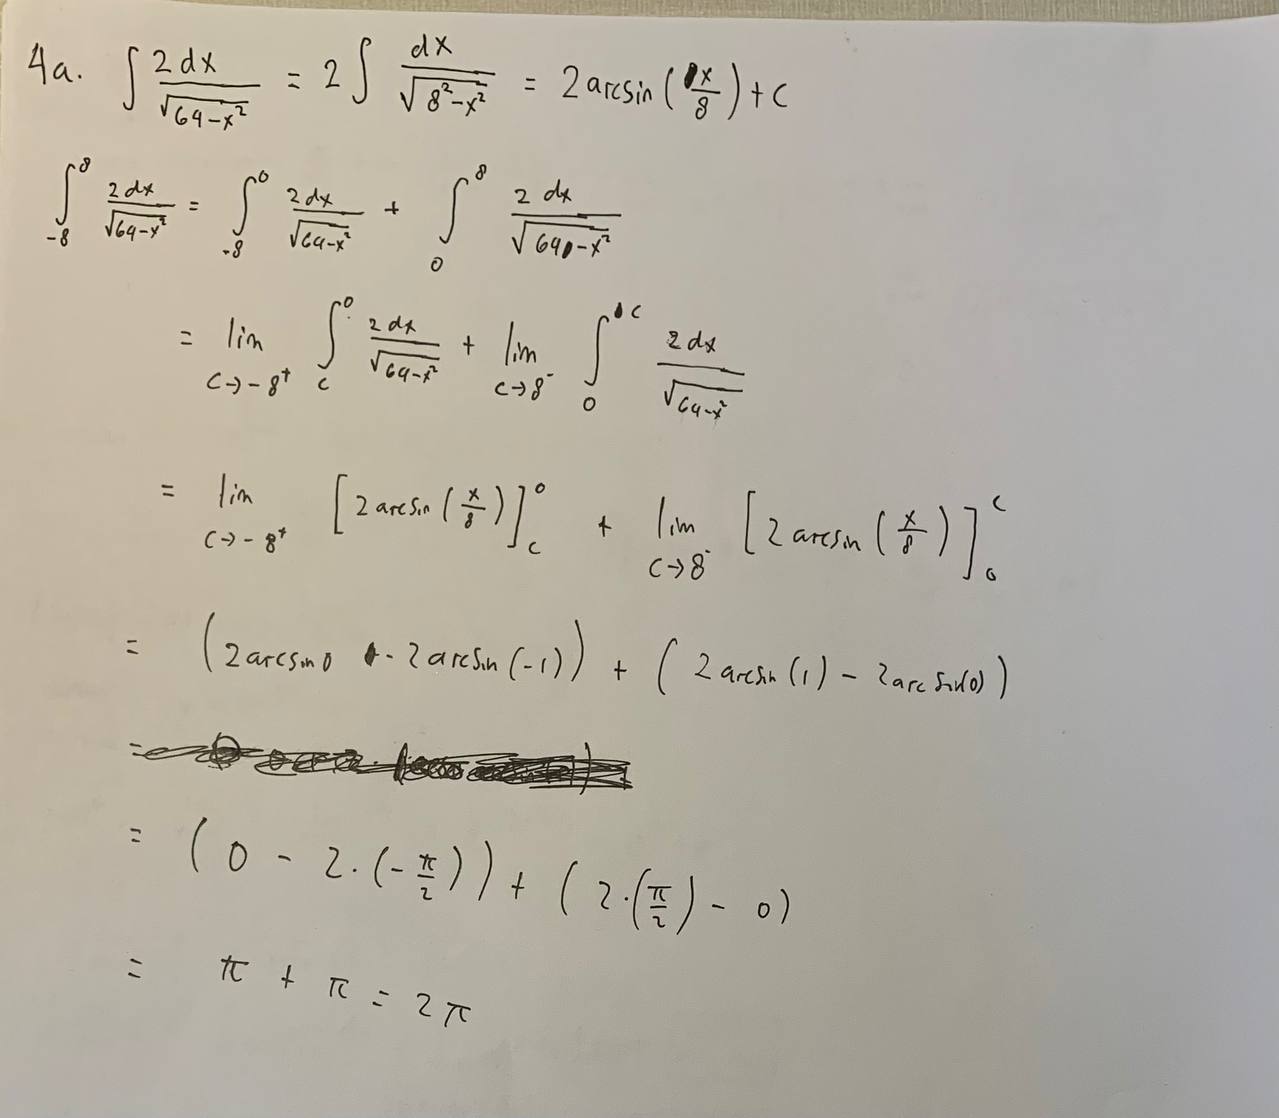 4a. ∫ 2 dx / √(64-x²) = 2 ∫ dx / √(8²-x²) = 2 arcsin (x/8) + C
∫_{-8}^{8} 2 dx / √(64-x²) = ∫_{-8}^{0} 2 dx / √(64-x²) + ∫_{0}^{8} 2 dx / √(64-x²)
= lim_{C→-8⁺} ∫_{c}^{0} 2 dx / √(64-x²) + lim_{C→8⁻} ∫_{0}^{c} 2 dx / √(64-x²)
= lim_{C→-8⁺} [2 arcsin (x/8)]_{c}^{0} + lim_{C→8⁻} [2 arcsin (x/8)]_{0}^{c}
= (2 arcsin 0 - 2 arcsin (-1)) + (2 arcsin (1) - 2 arc sin(0))
=
= (0 - 2·(-π/2)) + (2·(π/2) - 0)
= π + π = 2π